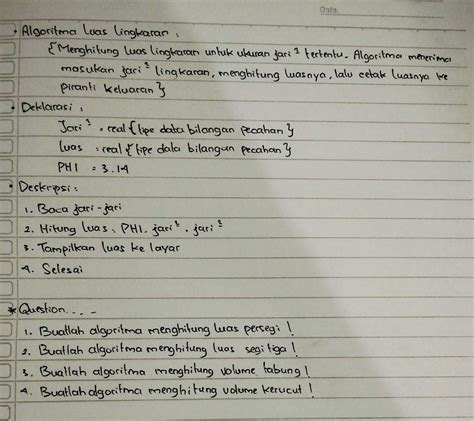 Date
• Algoritma Luas Lingkaran :
{ Menghitung luas lingkaran untuk ukuran jari² tertentu. Algoritma menerima
masukan jari² lingkaran, menghitung luasnya, lalu cetak luasnya ke
piranti keluaran }
• Deklarasi :
Jari² : real { tipe data bilangan pecahan }
luas : real { tipe data bilangan pecahan }
PHI = 3.14
• Deskripsi :
1. Baca jari-jari
2. Hitung luas : PHI. jari². jari²
3. Tampilkan luas ke layar
4. Selesai
* Question....-
1. Buatlah algoritma menghitung luas persegi !
2. Buatlah algoritma menghitung luas segitiga !
3. Buatlah algoritma menghitung volume tabung !
4. Buatlah algoritma menghitung volume kerucut !